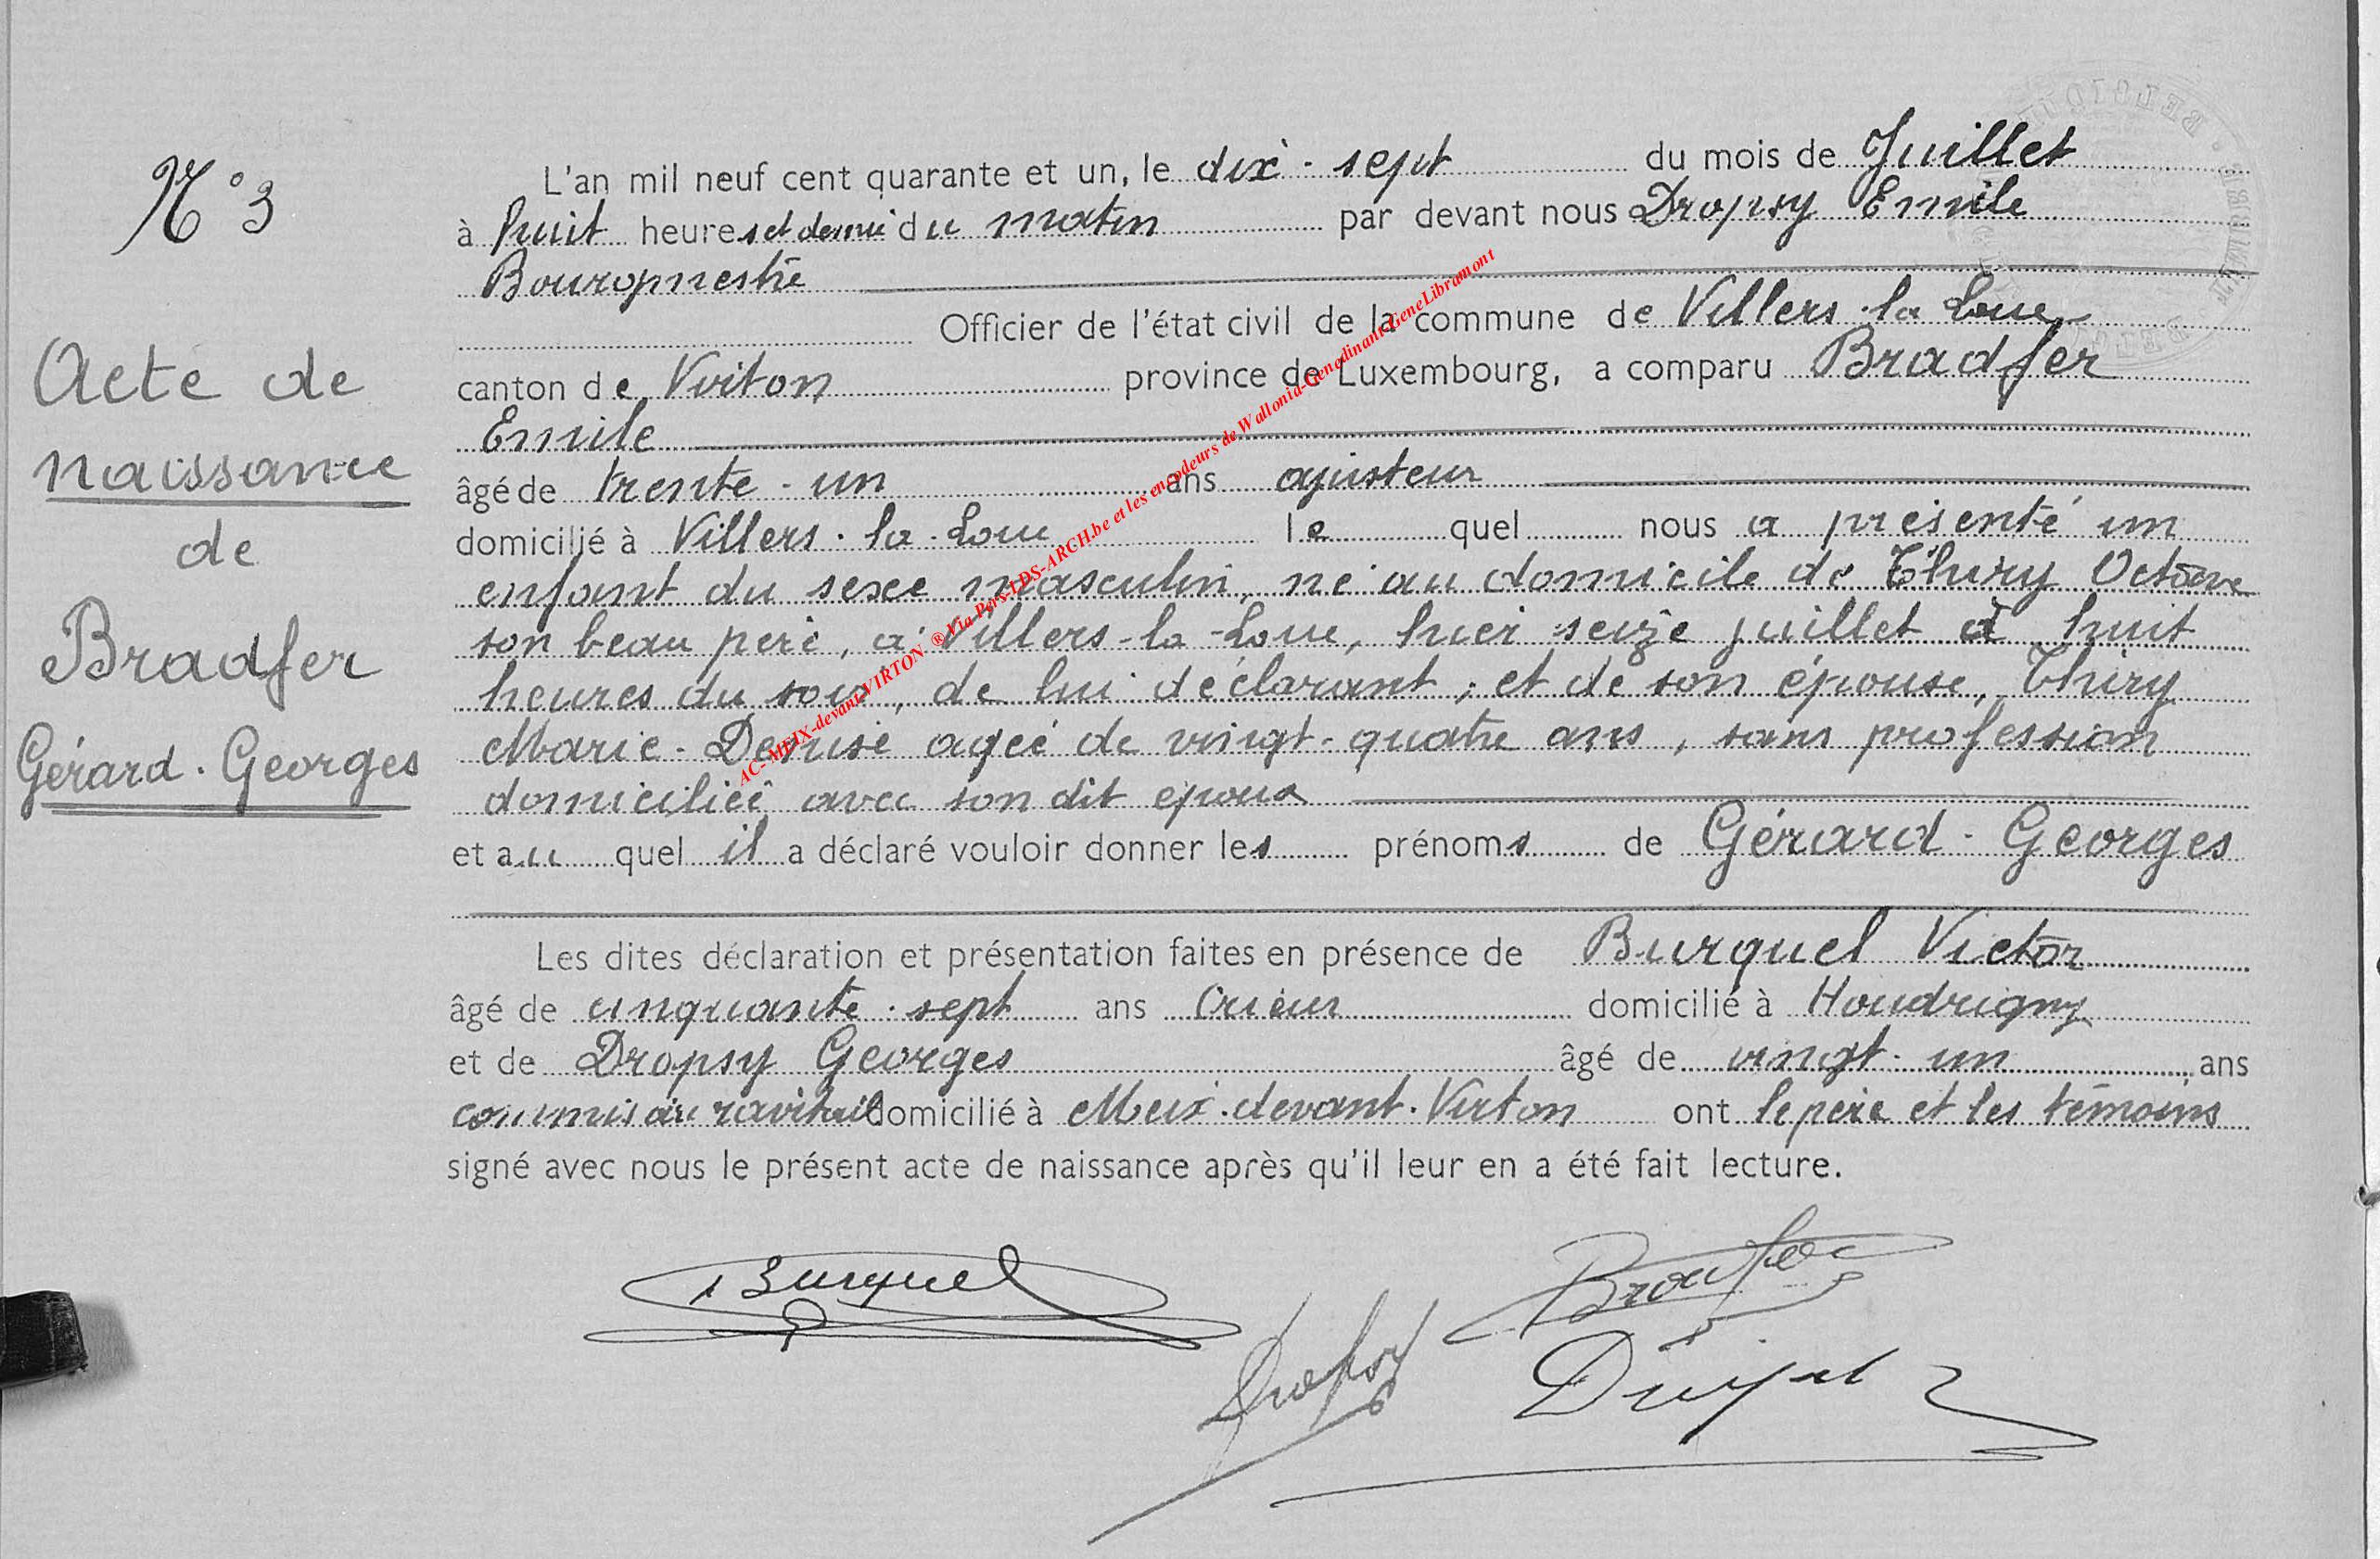 N° 3
Acte de
naissance
de
Bradfer
Gérard-Georges
L'an mil neuf cent quarante et un, le dix-sept du mois de Juillet
à huit heures et demie du matin par devant nous Dropsy Emile
Bourgmestre
Officier de l'état civil de la commune de Villers-la-Loue
canton de Virton province de Luxembourg, a comparu Bradfer
Emile
âgé de trente-un ans ajusteur
domicilié à Villers-la-Loue lequel nous a présenté un
enfant du sexe masculin, né au domicile de Thiry Octave
son beau père, à Villers-la-Loue, hier seize juillet à huit
heures du soir, de lui déclarant, et de son épouse, Thiry
Marie-Denise agée de vingt-quatre ans, sans profession
domiciliée avec son dit époux
et au quel il a déclaré vouloir donner les prénoms de Gérard-Georges
Les dites déclaration et présentation faites en présence de Burquel Victor
âgé de cinquante-sept ans Crieur domicilié à Houdrigny
et de Dropsy Georges âgé de vingt-un ans
commis au ravitail domicilié à Meix-devant-Virton ont le père et les témoins
signé avec nous le présent acte de naissance après qu'il leur en a été fait lecture.
Burquel
Bradfer
Dropsy
AC-MEIX-devant-VIRTON ® Via Pers-LDS-ARCH.be et les encodeurs de Wallonia-Genedinant-GeneLibramont